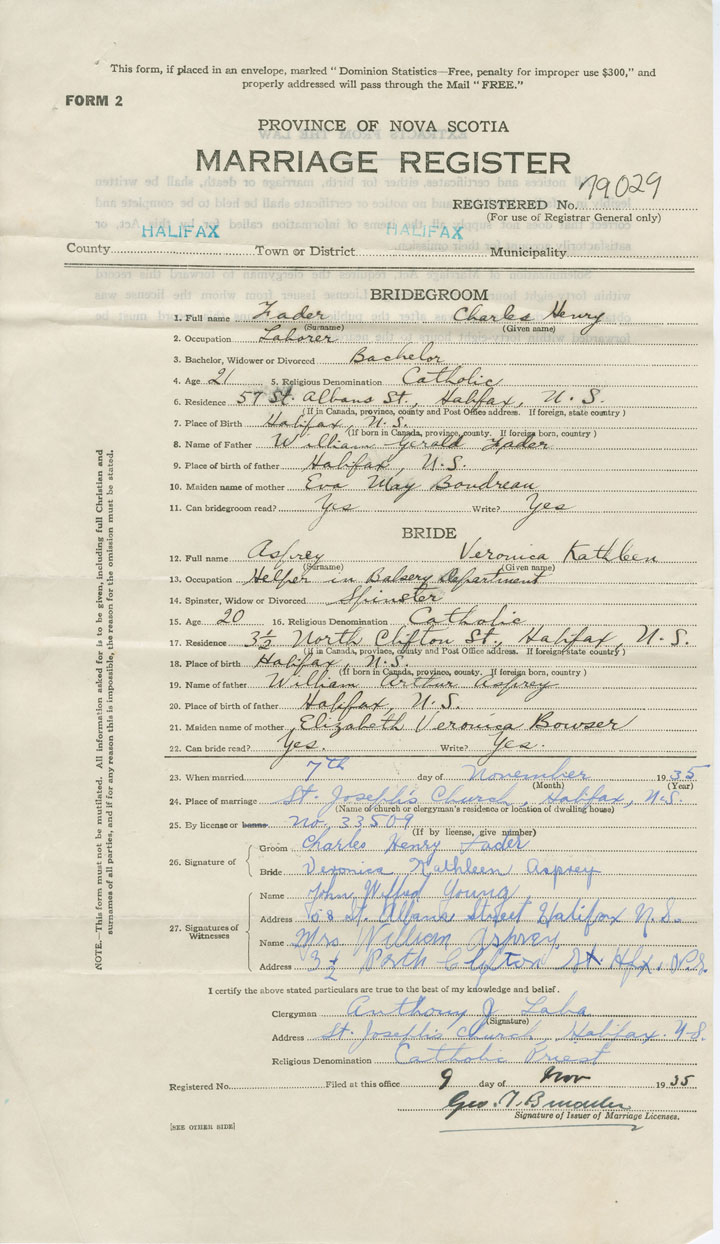 This form, if placed in an envelope, marked "Dominion Statistics—Free, penalty for improper use $300," and
properly addressed will pass through the Mail "FREE."
FORM 2
PROVINCE OF NOVA SCOTIA
MARRIAGE REGISTER
REGISTERED No. 79029
(For use of Registrar General only)
County HALIFAX Town or District HALIFAX Municipality
BRIDEGROOM
1. Full name Fader Charles Henry
(Surname) (Given name)
2. Occupation Laborer
3. Bachelor, Widower or Divorced Bachelor
4. Age 21 5. Religious Denomination Catholic
6. Residence 57 St. Albans St., Halifax, N.S.
(If in Canada, province, county and Post Office address. If foreign, state country)
7. Place of Birth Halifax, N.S.
(If born in Canada, province, county. If foreign born, country)
8. Name of Father William Gerald Fader
9. Place of birth of father Halifax, N.S.
10. Maiden name of mother Eva May Boudreau
11. Can bridegroom read? Yes Write? Yes
BRIDE
12. Full name Asprey Veronica Kathleen
(Surname) (Given name)
13. Occupation Helper in Bakery Department
14. Spinster, Widow or Divorced Spinster
15. Age 20 16. Religious Denomination Catholic
17. Residence 3½ North Clifton St., Halifax, N.S.
(If in Canada, province, county and Post Office address. If foreign state country)
18. Place of birth Halifax, N.S.
(If born in Canada, province, county. If foreign born, country)
19. Name of father William Arthur Asprey
20. Place of birth of father Halifax, N.S.
21. Maiden name of mother Elizabeth Veronica Bowser
22. Can bride read? Yes. Write? Yes.
23. When married 7th day of November 1935
(Month) (Year)
24. Place of marriage St. Joseph's Church, Halifax, N.S.
(Name of church or clergyman's residence or location of dwelling house)
25. By license or banns No. 33509
(If by license, give number)
26. Signature of
Groom Charles Henry Fader
Bride Veronica Kathleen Asprey
27. Signatures of Witnesses
Name John Wilfred Young
Address St. Albans Street Halifax N.S.
Name Mrs William Asprey
Address 3½ North Clifton St. Hfx. N.S.
I certify the above stated particulars are true to the best of my knowledge and belief.
Clergyman Anthony J Laba
(Signature)
Address St. Joseph's Church, Halifax. N.S.
Religious Denomination Catholic Priest
Registered No. Filed at this office 9 day of Nov 1935
Geo. T.
Signature of Issuer of Marriage Licenses.
[SEE OTHER SIDE]
NOTE.—This form must not be mutilated. All information asked for is to be given, including full Christian and
surnames of all parties, and if for any reason this is impossible, the reason for the omission must be stated.